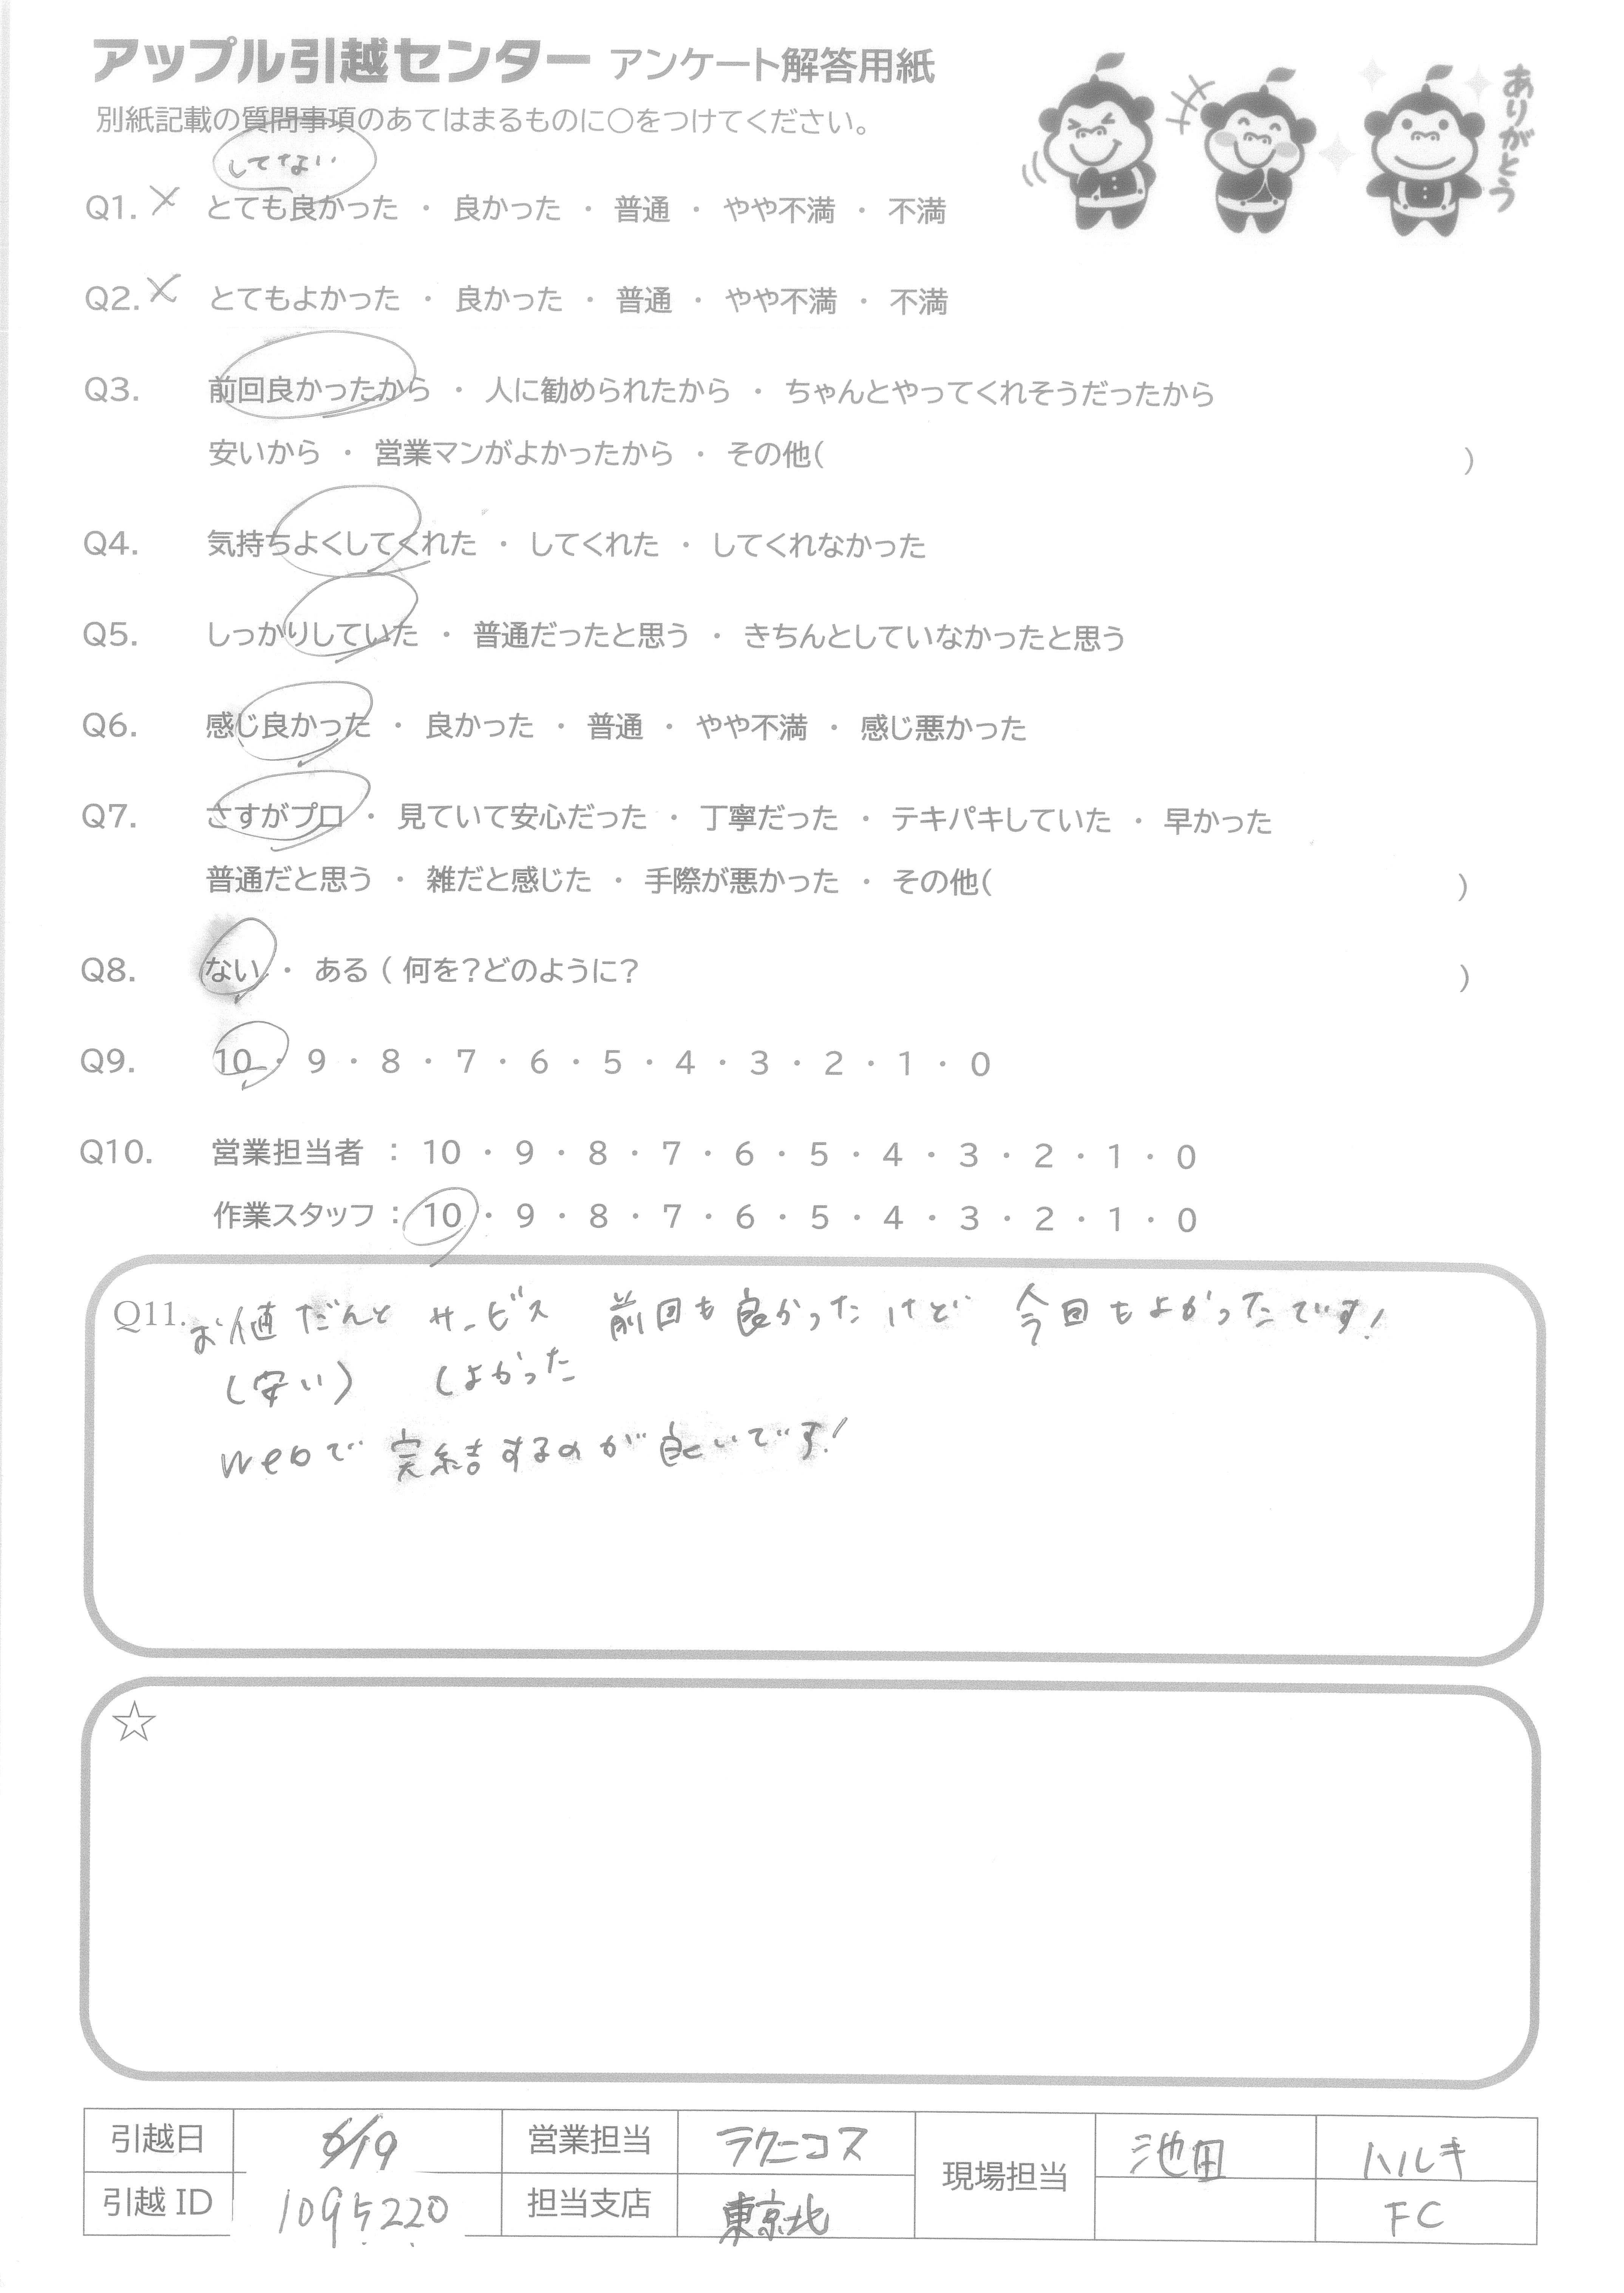 アップル引越センター アンケート解答用紙
別紙記載の質問事項のあてはまるものに○をつけてください。
ありがとう
してない
Q1. × とても良かった ・ 良かった ・ 普通 ・ やや不満 ・ 不満
Q2. × とてもよかった ・ 良かった ・ 普通 ・ やや不満 ・ 不満
Q3. 前回良かったから ・ 人に勧められたから ・ ちゃんとやってくれそうだったから
安いから ・ 営業マンがよかったから ・ その他( )
Q4. 気持ちよくしてくれた ・ してくれた ・ してくれなかった
Q5. しっかりしていた ・ 普通だったと思う ・ きちんとしていなかったと思う
Q6. 感じ良かった ・ 良かった ・ 普通 ・ やや不満 ・ 感じ悪かった
Q7. さすがプロ ・ 見ていて安心だった ・ 丁寧だった ・ テキパキしていた ・ 早かった
普通だと思う ・ 雑だと感じた ・ 手際が悪かった ・ その他( )
Q8. ない ・ ある ( 何を?どのように? )
Q9. 10 ・ 9 ・ 8 ・ 7 ・ 6 ・ 5 ・ 4 ・ 3 ・ 2 ・ 1 ・ 0
Q10. 営業担当者 : 10 ・ 9 ・ 8 ・ 7 ・ 6 ・ 5 ・ 4 ・ 3 ・ 2 ・ 1 ・ 0
作業スタッフ : 10 ・ 9 ・ 8 ・ 7 ・ 6 ・ 5 ・ 4 ・ 3 ・ 2 ・ 1 ・ 0
Q11. お値だんと サービス 前回も良かったけど 今回もよかったです!
(安い) (よかった
webで完結するのが良いです!
☆
引越日 6/19 営業担当 ラクニコス 現場担当 池田 ハルキ
引越 ID 1095220 担当支店 東京北 FC